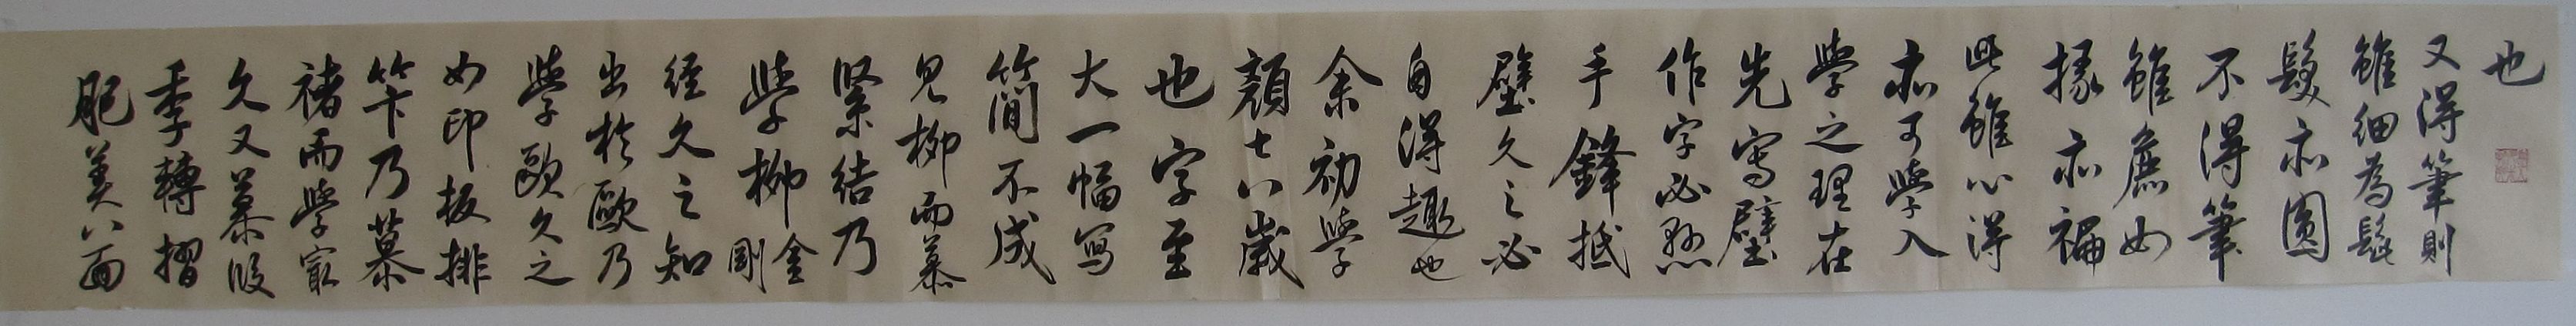 也
又得筆則
雖細為髭
髮亦圓
不得筆
雖麁如
椽亦褊
此雖心得
亦可學入
學之理在
先寫壁
作字必懸
手鋒抵
壁久之必
自得趣也
余初學
顏七八歲
也字至
大一幅寫
簡不成
見柳而慕
緊結乃
學柳金剛
經久之知
出於歐乃
學歐久之
如印板排
筭乃慕
褚而學最
久又慕段
季轉摺
肥美八面